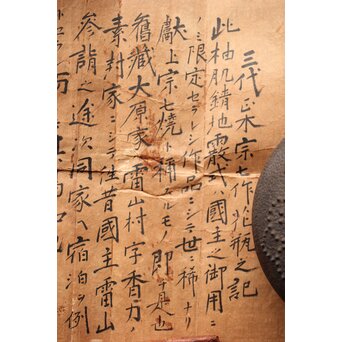 三代正木宗七作花瓶之記
此柚肌錆地霰式ハ國主之御用ニ
ノミ限定セラレシ作品ニシテ世ニ稀ナリ
献上宗七燒ト稱スルモノ即チ是也
舊藏大原家ハ雷山村字香力ノ
素封家ニシテ往昔國主雷山
參詣之途次同家ヘ宿泊ノ例